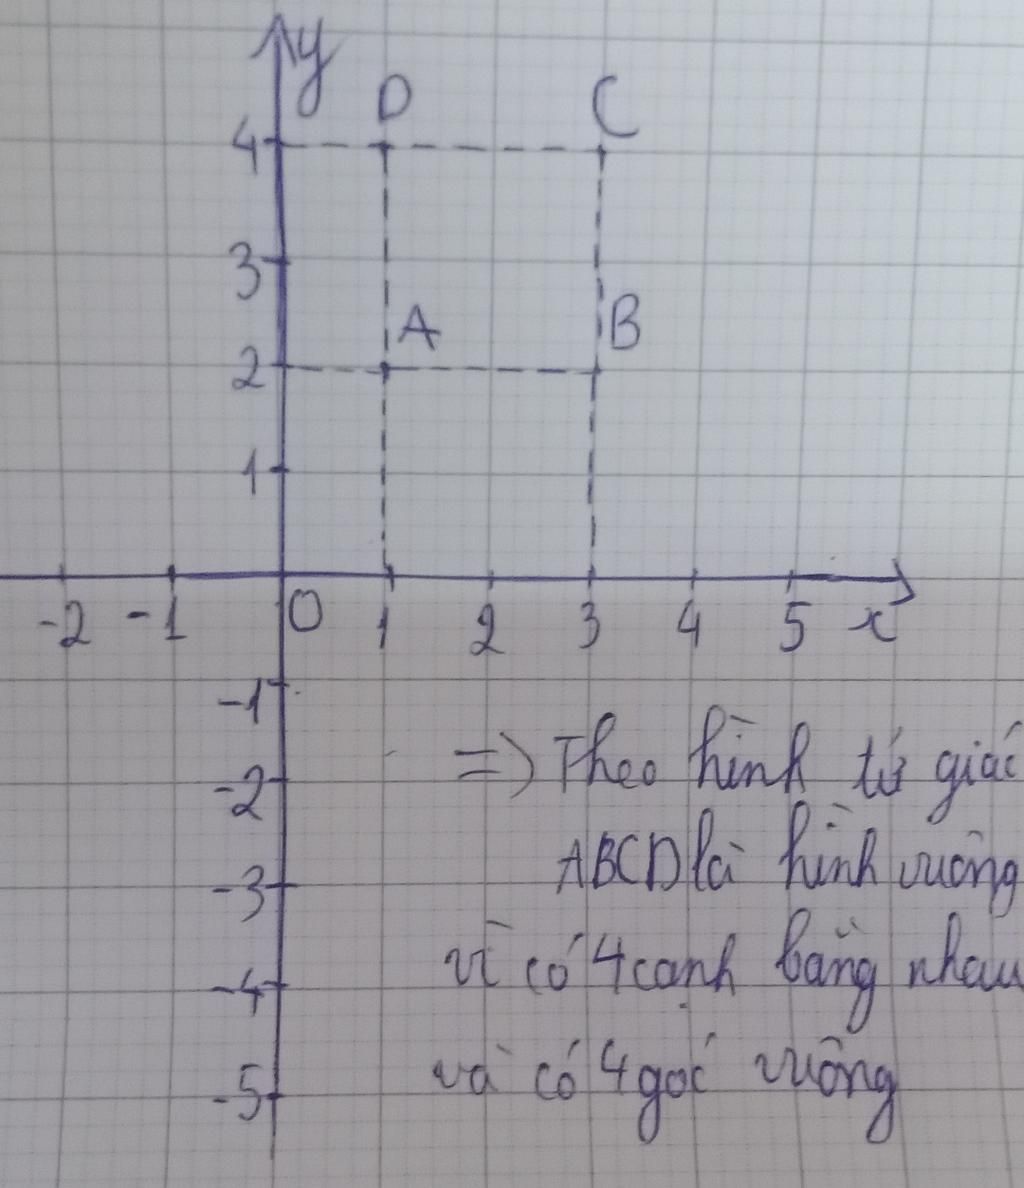 y
D C
4
3
A B
2
1
-2 -1 O 1 2 3 4 5 x
-1
=) Theo hình tứ giác
-2
ABCD là hình vuông
-3
vì có 4 cạnh bằng nhau
-4
và có 4 góc vuông
-5